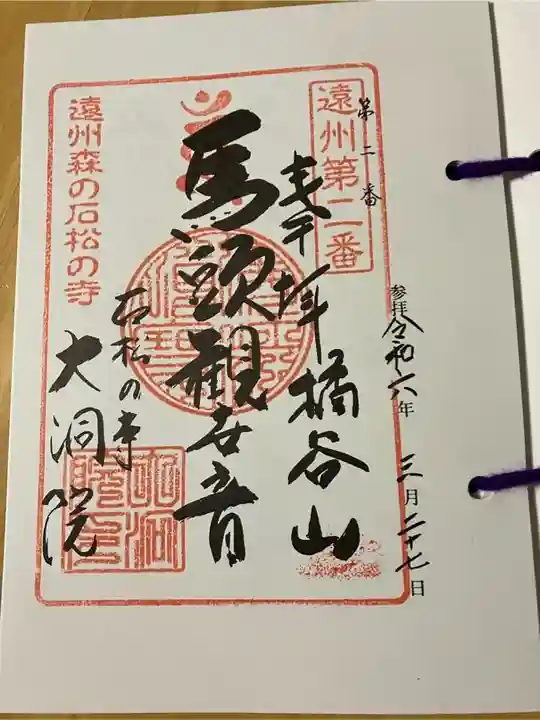 参拝令和六年三月二十七日
第二番
遠州第二番
奉拝 橘谷山
馬頭観世音
石松の寺
大洞院
遠州森の石松の寺